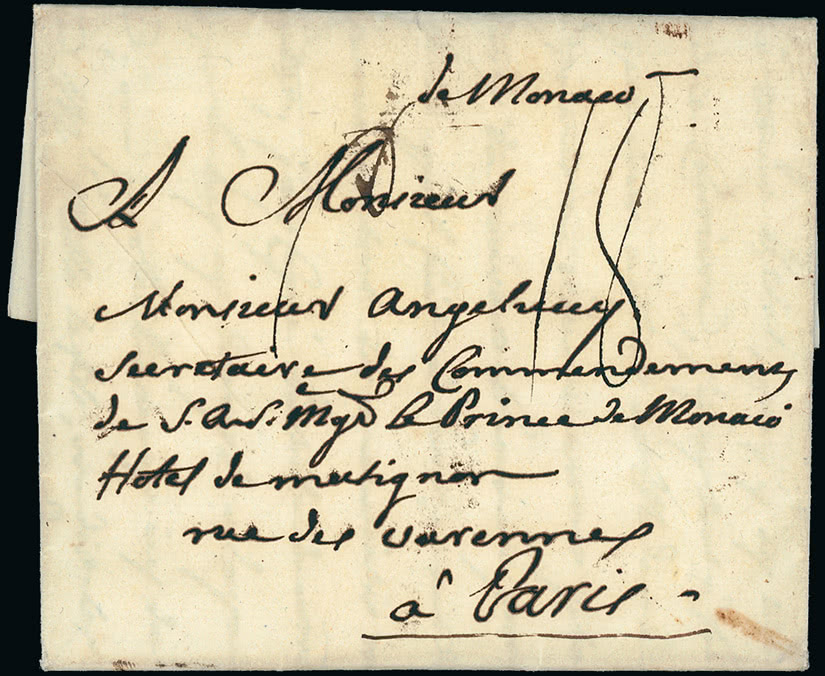 de Monaco
A Monsieur
18
Monsieur Angeluccy
Secretaire des Commendements
de S. A. S. Mgr le Prince de Monaco
Hotel de matignon
rue des varennes
à Paris